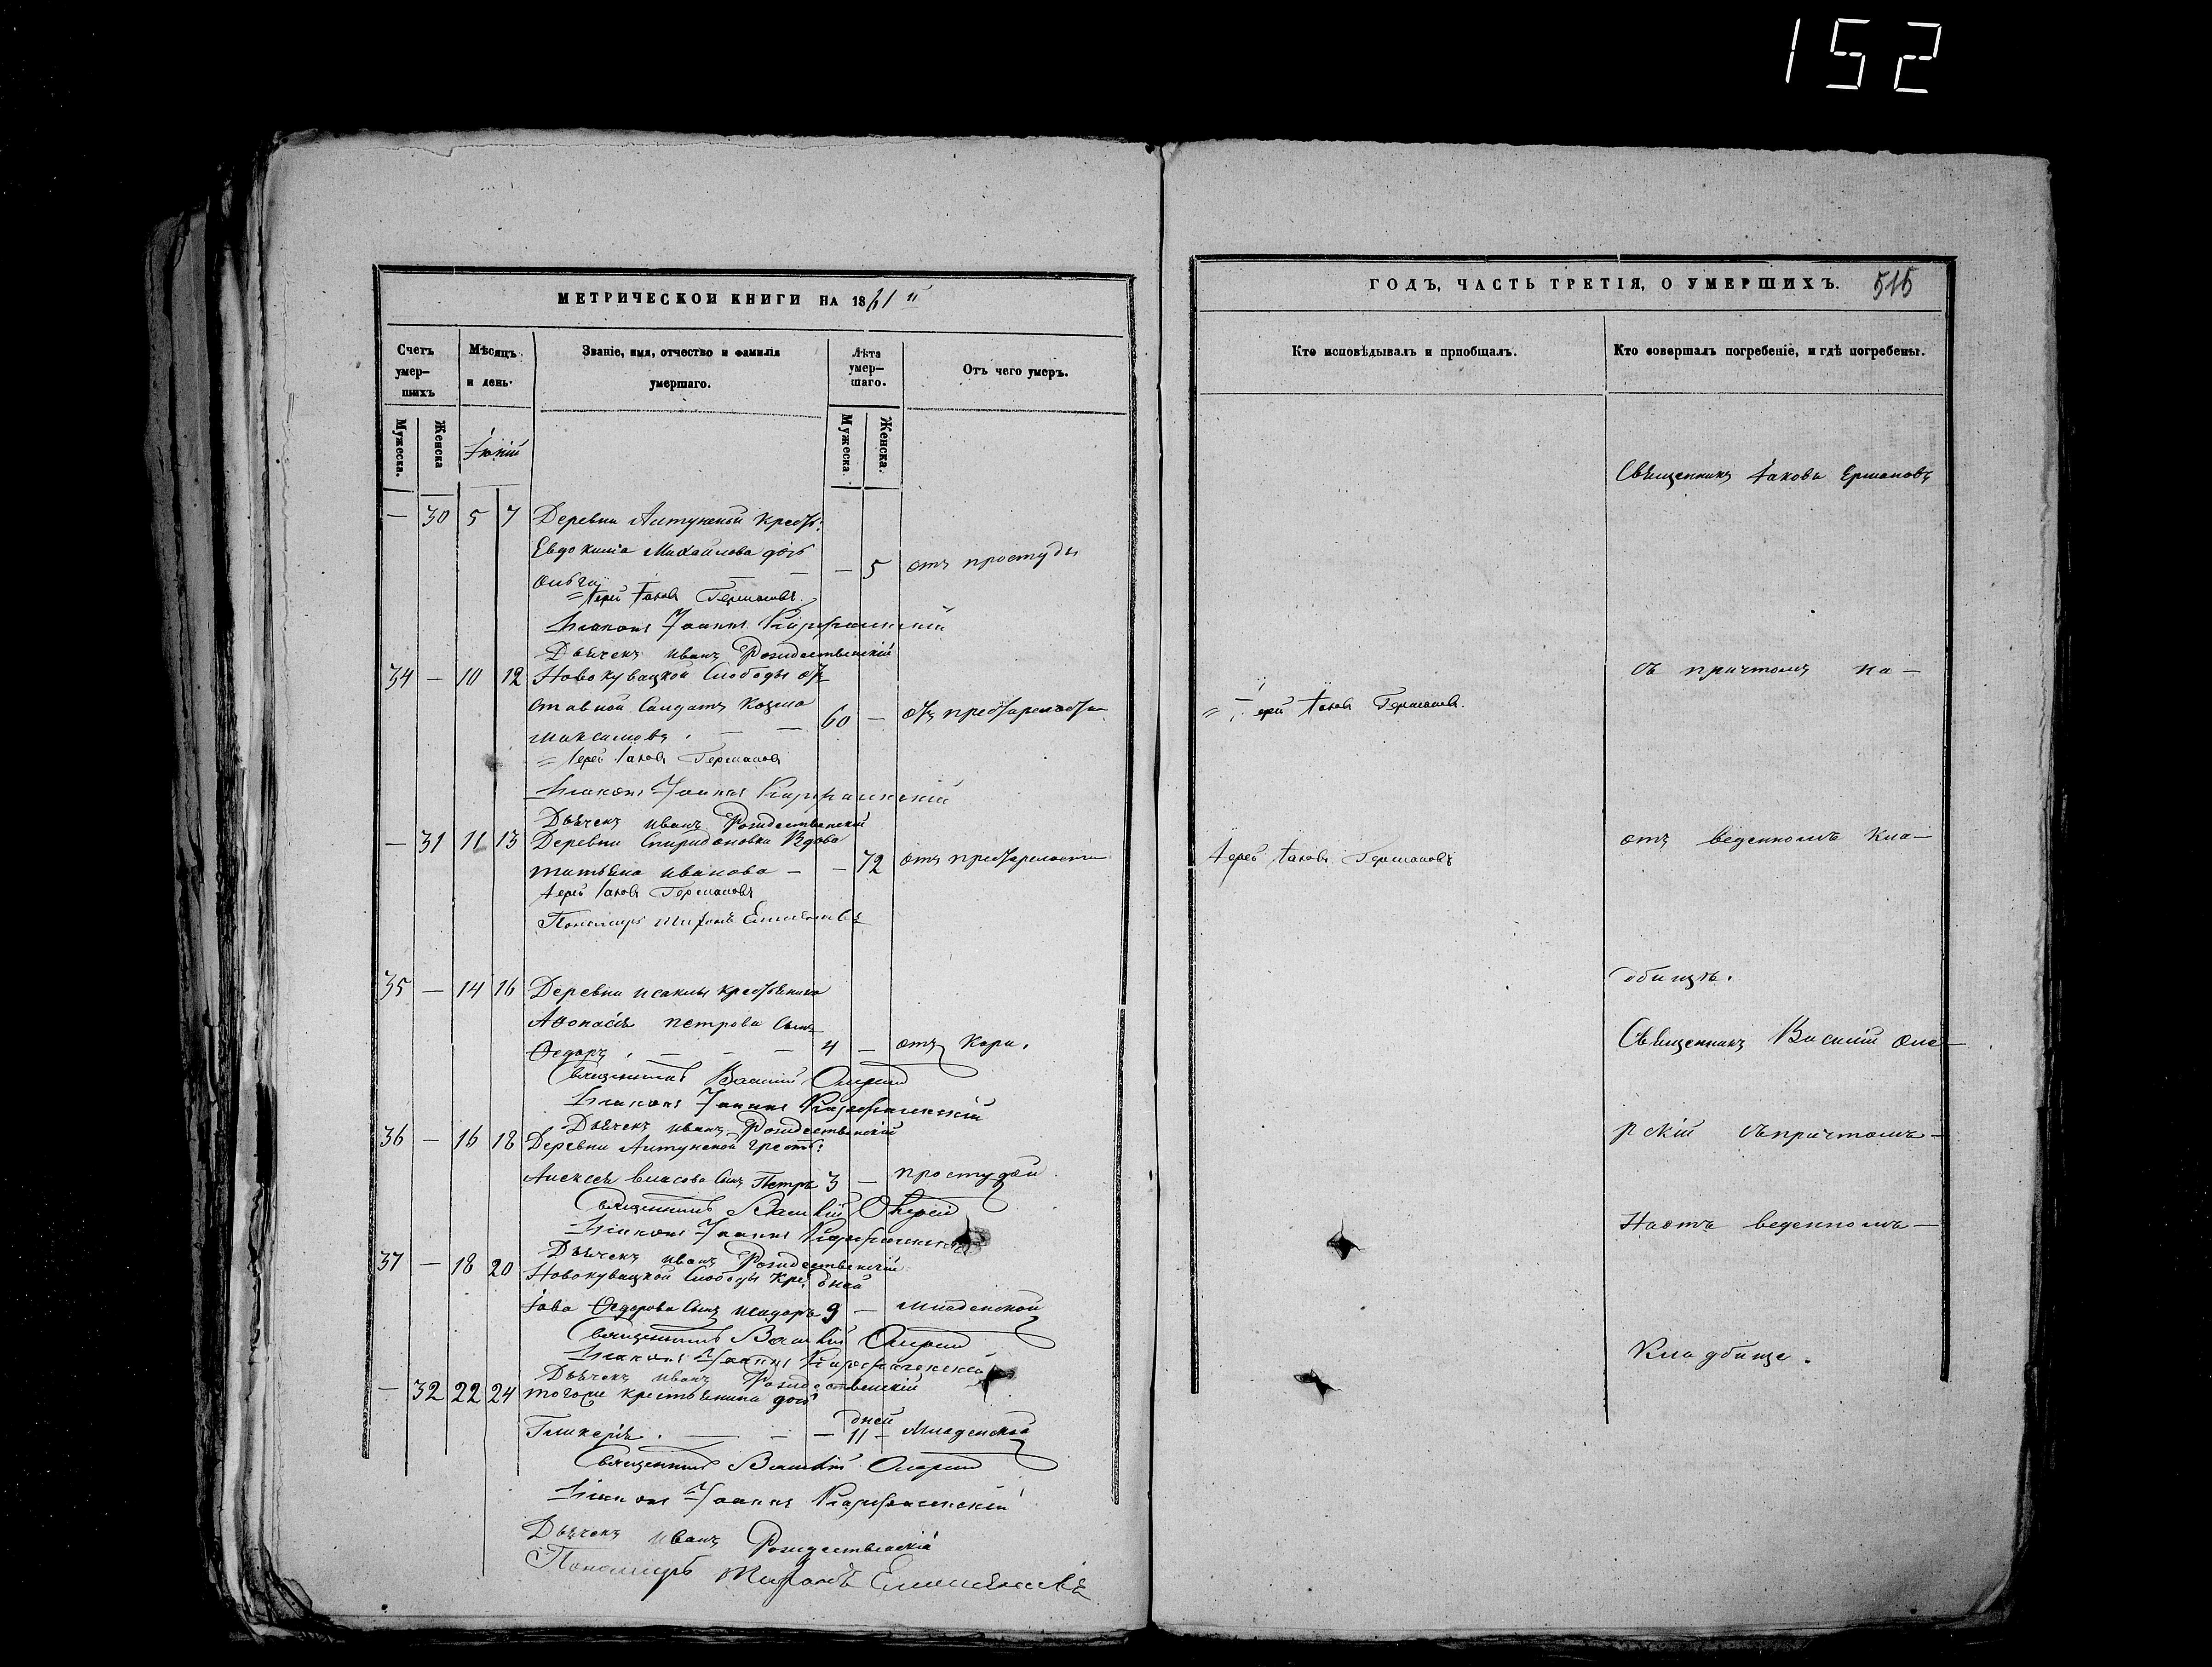 152
МЕТРИЧЕСКОЙ КНИГИ НА 1861 й
Счетъ умер-шихъ
Мѣсяцъ и день.
Званіе, имя, отчество и фамилія умершаго.
Лѣта умер-шаго.
Отъ чего умеръ.
Мужеска.
Женска
Іюній
Мужеска.
Женска.
— 30 5 7 Деревни Алтунъиной крест:
Евдокима Михайлова дочь
Ольга — — — 5 отъ простуды
Іерей Іаковъ Германовъ.
Діаконъ Іоаннъ
Дьячекъ Иванъ Рождественскій
34 — 10 12 Новокувацкой Слободы от
ставной Салдатъ Козма
Максимовъ. — — 60 — отъ престарелости
Іерей Іаковъ Германовъ
Діаконъ Іоаннъ
Дьячекъ Иванъ Рождественскій
— 31 11 13 Деревни Спиридоновки Вдова
Татьяна Иванова — — 72 отъ престарелости
Іерей Іаковъ Германовъ
Пономарь
35 — 14 16 Деревни Исаклы крестьянина
Афонасія Петрова сынъ
Ѳедоръ. — — — 4 — отъ Кори.
Священникъ Василій
Діаконъ Іоаннъ
Дьячекъ Иванъ Рождественскій
36 — 16 18 Деревни крест:
Алексея Власова сынъ Петръ 3 — простудой
Священникъ Василій
Діаконъ Іоаннъ
Дьячекъ Иванъ Рождественскій
37 — 18 20 Новокувацкой Слободы кре. дней
Іова Ѳедорова сынъ Исидоръ 9 — Младенской
Священникъ Василій
Діаконъ Іоаннъ
Дьячекъ Иванъ Рождественскій
— 32 22 24 тогоже крестьянина дочь
дней
Гликерія. — — — 11 — Младенской
Священникъ Василій
Діаконъ Іоаннъ
Дьячекъ Иванъ Рождественскій
Пономарь
ГОДЪ, ЧАСТЬ ТРЕТІЯ, О УМЕРШИХЪ. 515
Кто исповѣдывалъ и пріобщалъ.
Кто совершалъ погребеніе, и гдѣ погребены.
Священникъ Іаковъ Ермановъ
съ причтомъ на—
Іерей Іаковъ Германовъ.
отъ веденномъ кла—
Іерей Іаковъ Германовъ
дбищѣ.
Священникъ Василій Оле—
рскій съ причтомъ—
На отъ веденномъ—
Кладбище.